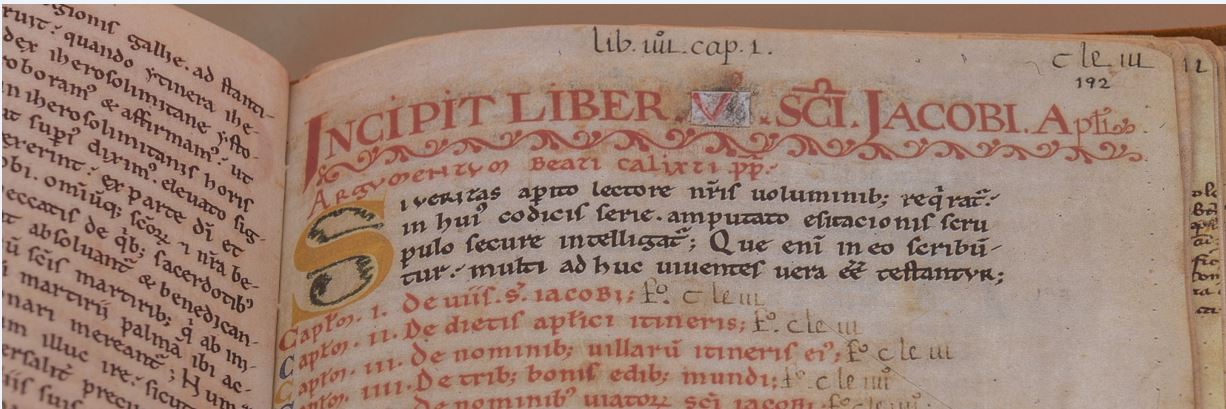 gionis gallie. ad stanti-
ruit: quando ytinera ihe-
dex iherosolimitane ysto-
oboramꝰ & affirmamꝰ: ut
in iherosolimitanis horis
ut supͥ diximꝰ elevato sig-
xerint: ex parte dı̄ et
obi. omniūq; scōꝝ ı nr̄a be-
peccatis de qͥb; sacerdotibꝰ
absoluant̄ & benedican-
scı̄s martirib; q ab im-
martirij palmā ibi ac-
nari mereant̄; Hum
m illuc ire: sicut
ersalit̄ precu
lib. iiii. cap. 1.
c le iii
192
INCIPIT LIBER V SC̄I. JACOBI. Apłi
Argumentum Beati Calixti pp̄.
Si veritas apͥto lectore nr̄is voluminib; reqͥrat̄:
in huiꝰ codicis serie. amputato esitacionis scru
pulo secure intelligat̄; Que enı̄ in eo scribū-
tur: multi ad huc viventes vera eē testantur;
Capłm. i. De viis. s̄. iacobi; fo. c le iii
Capłm. ii. De dietis apłici itineris; fo. c le iii
Capłm. iii. De nominib; villarū itineris eiꝰ; fo c le iii
Capłm. iiii. De trib; bonis edib; mundi; fo. c le iiii
de nominibꝰ viatoꝝ scı̄ iacobi. fo